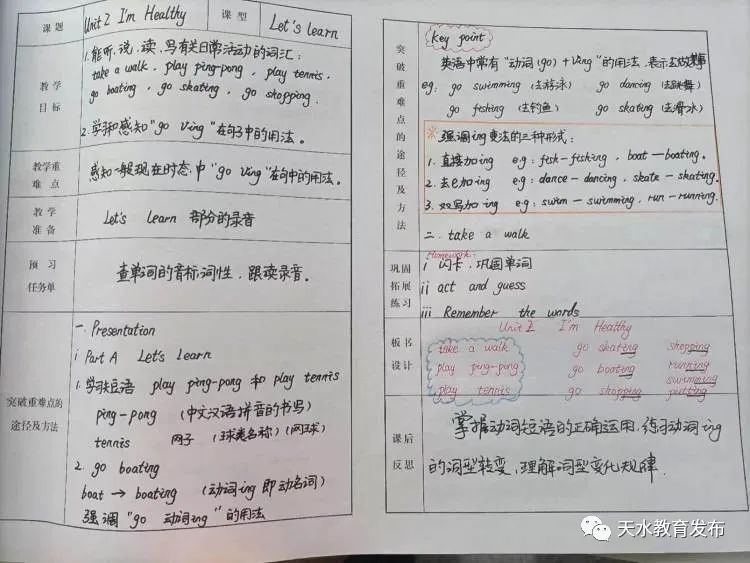 课题
Unit 2 I'm Healthy
课型
Let's learn
教学
目标
1.能听、说、读、写有关日常活动的词汇:
take a walk, play ping-pong, play tennis,
go boating, go skating, go shopping.
2.学习和感知"go Ving"在句子中的用法。
教学重
难点
感知一般现在时态中"go Ving"在句中的用法。
教学
准备
Let's learn 部分的录音
预习
任务单
查单词的音标、词性,跟读录音。
突破重难点的
途径及方法
一. Presentation
i Part A Let's Learn
1.学习短语 play ping-pong 和 play tennis
ping-pong (中文汉语拼音的书写)
tennis 网子 (球类名称)(网球)
2. go boating
boat → boating (动词ing 即动名词)
强调"go 动词ing"的用法
突破重难点的途径及方法
Key point
英语中常有"动词(go)+Ving"的用法,表示去做某事
eg: go swimming (去游泳) go dancing (去跳舞)
go fishing (去钓鱼) go skating (去滑冰)
※强调ing变法的三种形式:
1. 直接加ing eg: fish-fishing, boat—boating.
2. 去e加ing eg: dance-dancing, skate-skating.
3. 双写加ing eg: swim—swimming, run-running.
二. take a walk
巩固
拓展
练习
Homework:
i 闪卡,巩固单词
ii act and guess
iii Remember the words
板书
设计
Unit 2 I'm Healthy
take a walk go skating shopping
play ping-ping go boating running
swimming
play tennis go shopping putting
课后
反思
掌握动词短语的正确运用,练习动词ing
的词型转变,理解词型变化规律.
天水教育发布